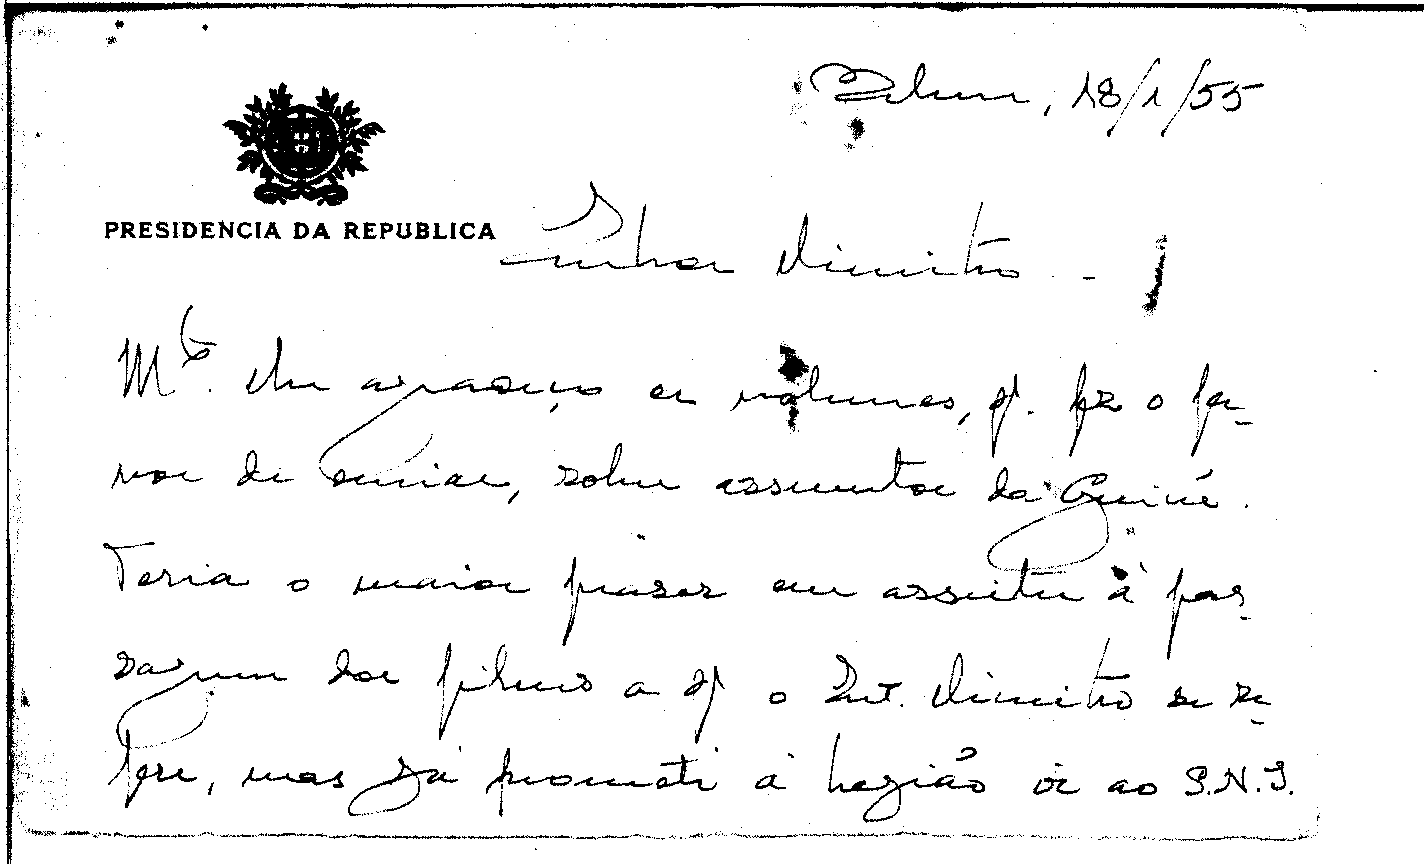 Belem, 18/1/55
PRESIDENCIA DA REPUBLICA
Senhor Ministro -
Mto. lhe agradeço os volumes, q. fez o fa-
vor de enviar, sobre assuntos da Guiné.
Teria o maior prazer em assistir à pas-
sagem dos filmes a q o Snr. Ministro se re-
fere, mas já prometi à Legião ir ao S.N.I.